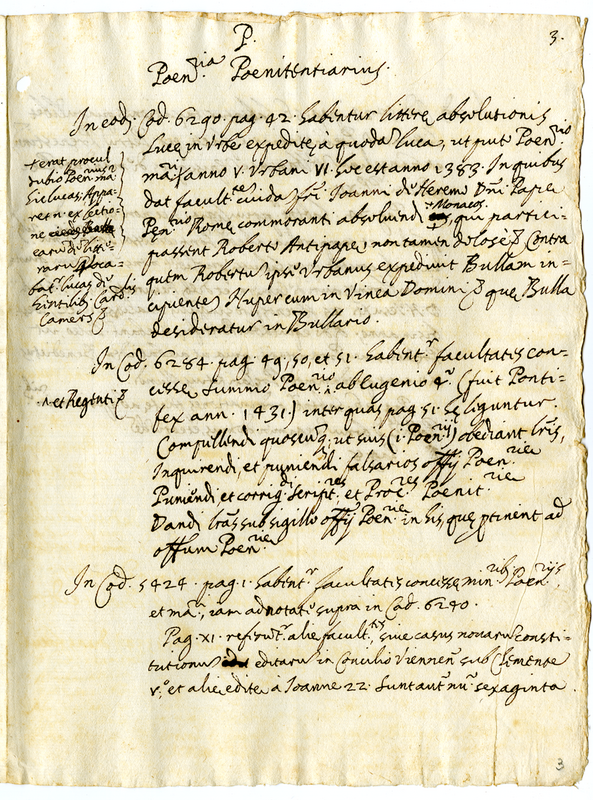 3.
P.
Poen.ria Poenitentiarius.
In eod. Cod. 6290. pag. 42. habentur litterę absolutionis
Lucę in Urbe expeditę à quoda Luca, ut puto Poen.rio
mai anno V. Urbani VI. hoc est anno 1383. In quibus
dat facult.tem cuida fri Joanni di Heremo Dni Papę
Pen.rio Romę commoranti absoluendi + Monacos, qui partici-
passent Roberto Antipapę non tamen dolosè contra
quem Robertu ipse Urbanus expediuit Bullam in-
cipiente Nuper cum in Vinea Domini que Bulla
desideratur in Bullario.
+ erat procul
dubio Poen.rius ma.
hic Lucas. Appa-
ret n. ex
ne
caru litte-
raru uoca-
bat. Lucas di
Gintilib. Card.lis
Camers
In Cod. 6284. pag. 49, 50, et 51. habent.r facultates con-
cessę Summo Poen.rio ab Eugenio 4.o (fuit Ponti-
fex ann. 1431.) inter quas pag. 51. hę liguntur
^ et Regenti
Compellendi quoscuq. ut suis (i. Poen.rij) obediant lris,
Inquirendi, et puniendi falsarios offij Poen.rię
Puniendi et corrigdi Script.res, et Proc.res Poenit.rię
Dandi lras sub sigillo offij Poen.rię in his, quę ptinent ad
offium Poen.rię
In Cod. 5424. pag. 1. habent.r facultates concessę min.rib. Poen.rijs,
et ma.r, iam adnotatę supra in Cod. 6290.
Pag. XI. referunt.r alię facult.tes, siue casus nouaru consti-
tutionu editaru in Concilio Viennen sub Clemente
V.o, et alię editę à Joanne 22. Sunt aut. nu. sexaginta.
3